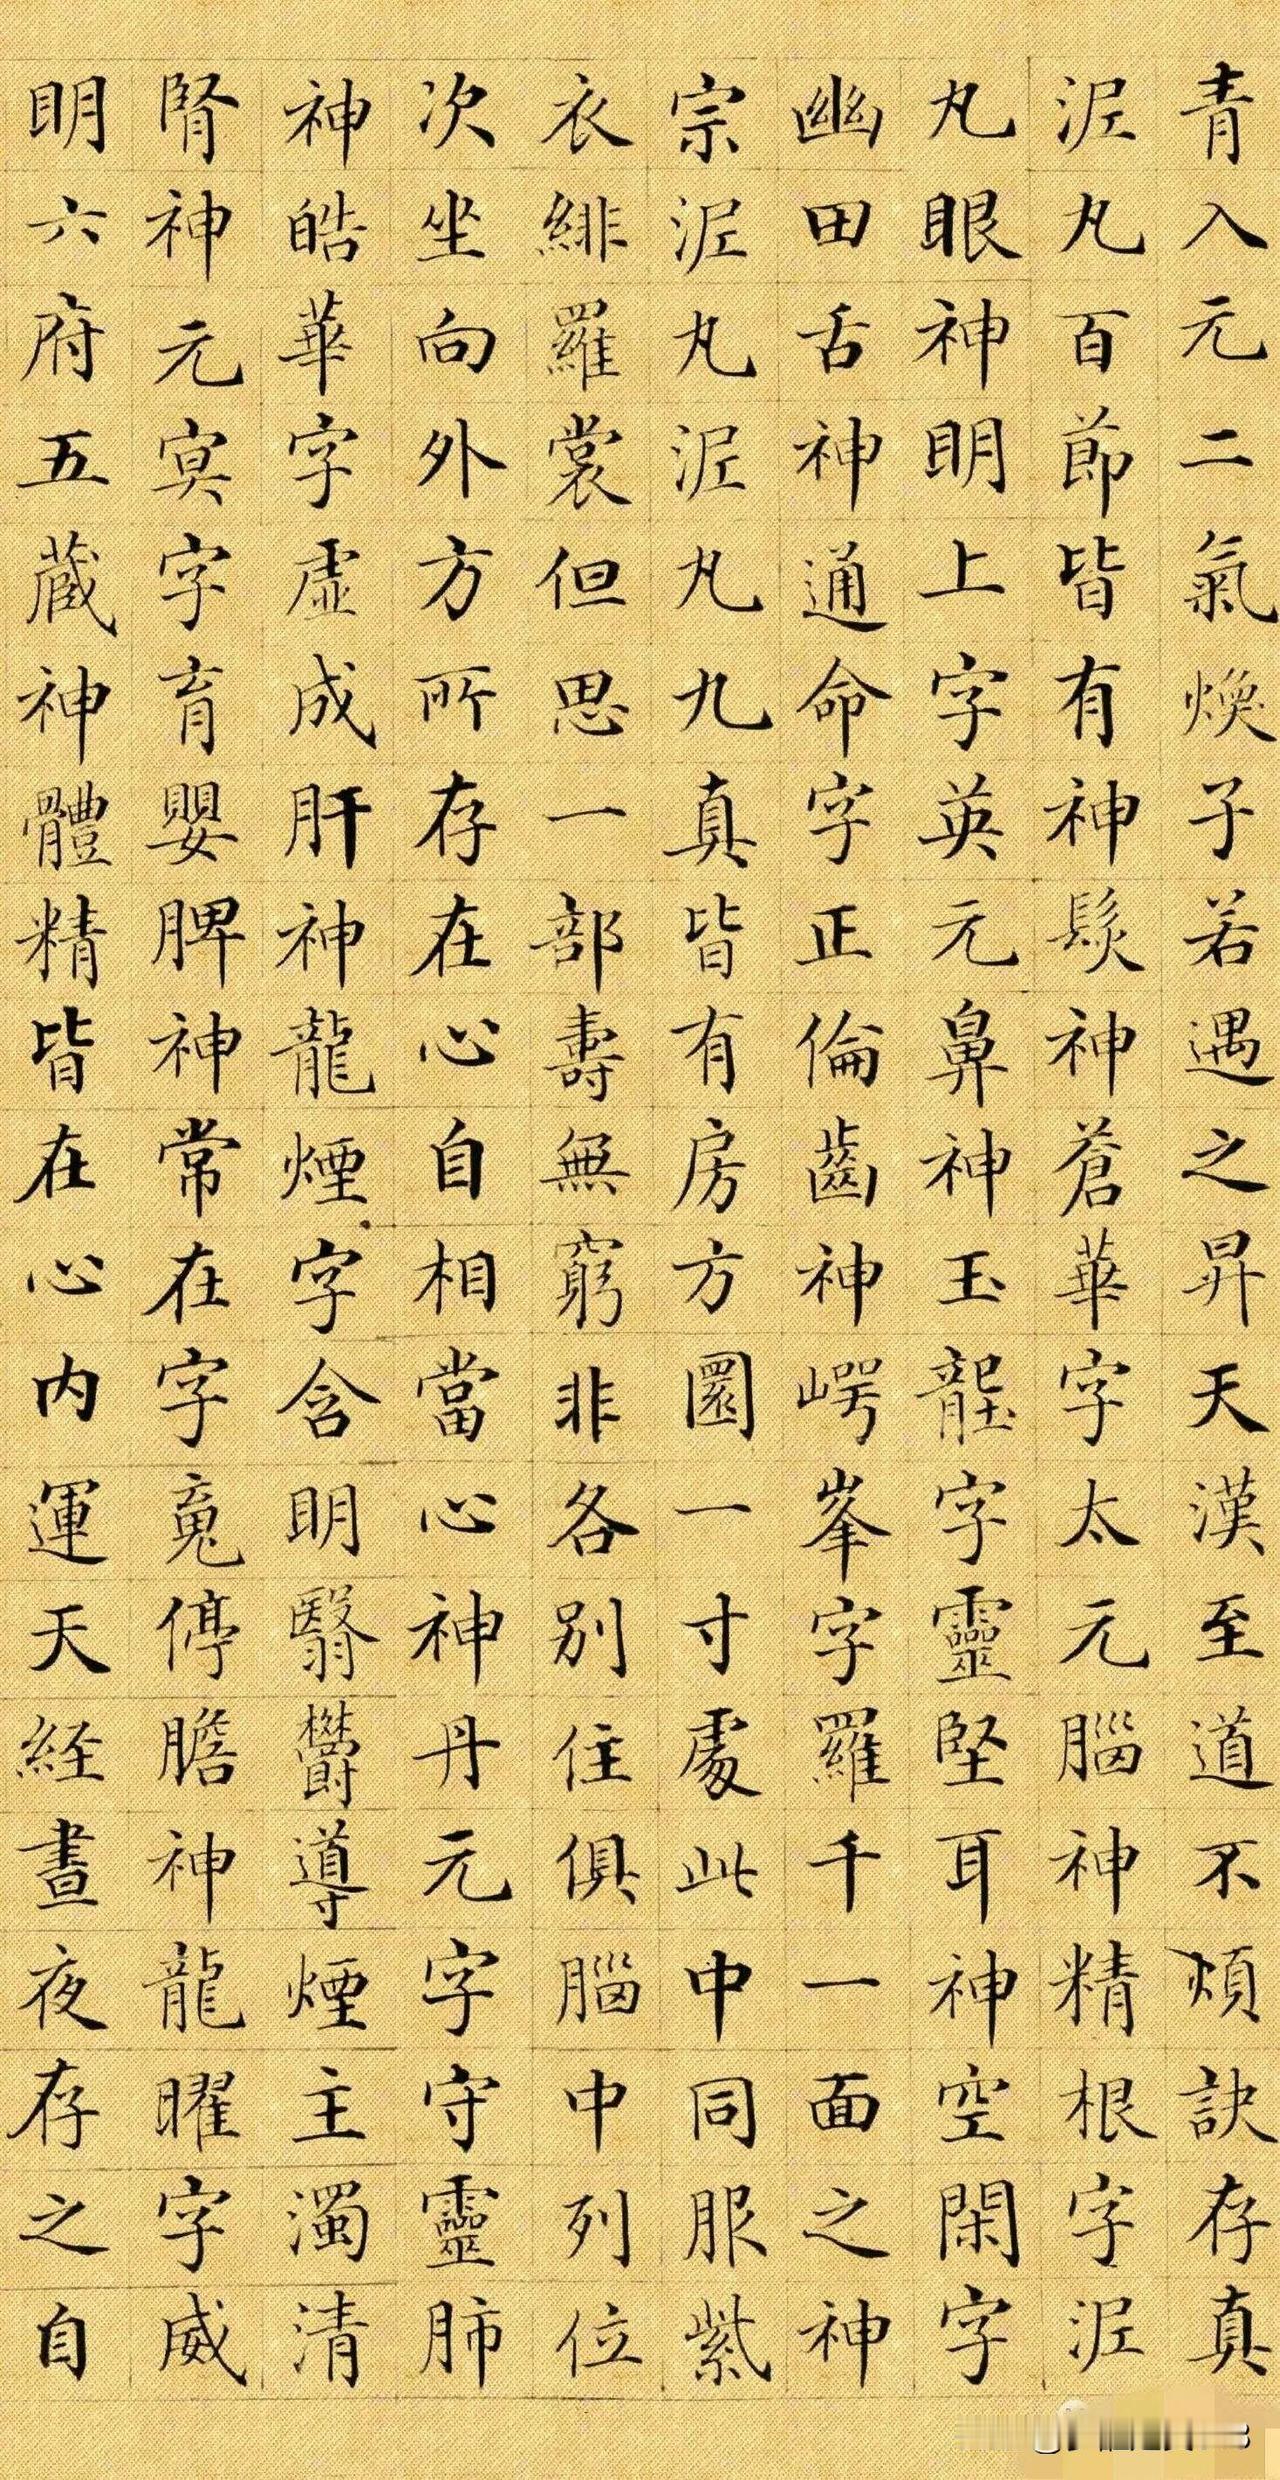 青入元二氣煥子若遇之昇天漢至道不煩訣存真
泥丸百節皆有神髮神蒼華字太元腦神精根字泥
丸眼神明上字英元鼻神玉壠字靈堅耳神空閑字
幽田舌神通命字正倫齒神崿峯字羅千一面之神
宗泥丸泥丸九真皆有房方圓一寸處此中同服紫
衣緋羅裳但思一部壽無窮非各別住俱腦中列位
次坐向外方所存在心自相當心神丹元字守靈肺
神皓華字虛成肝神龍煙字含明翳鬱導煙主濁清
腎神元冥字育嬰脾神常在字魂停膽神龍曜字威
明六府五藏神體精皆在心內運天経晝夜存之自